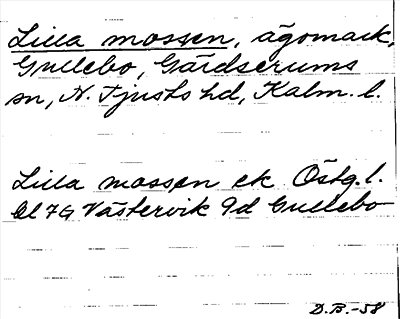 Lilla mossen, ägomark,
Gullebo, Gärdserums
sn, N. Tjusts hd, Kalm. l.
Lilla mossen ek Östg. l.
Bl 7G Västervik 9d Gullebo
D.B.-58